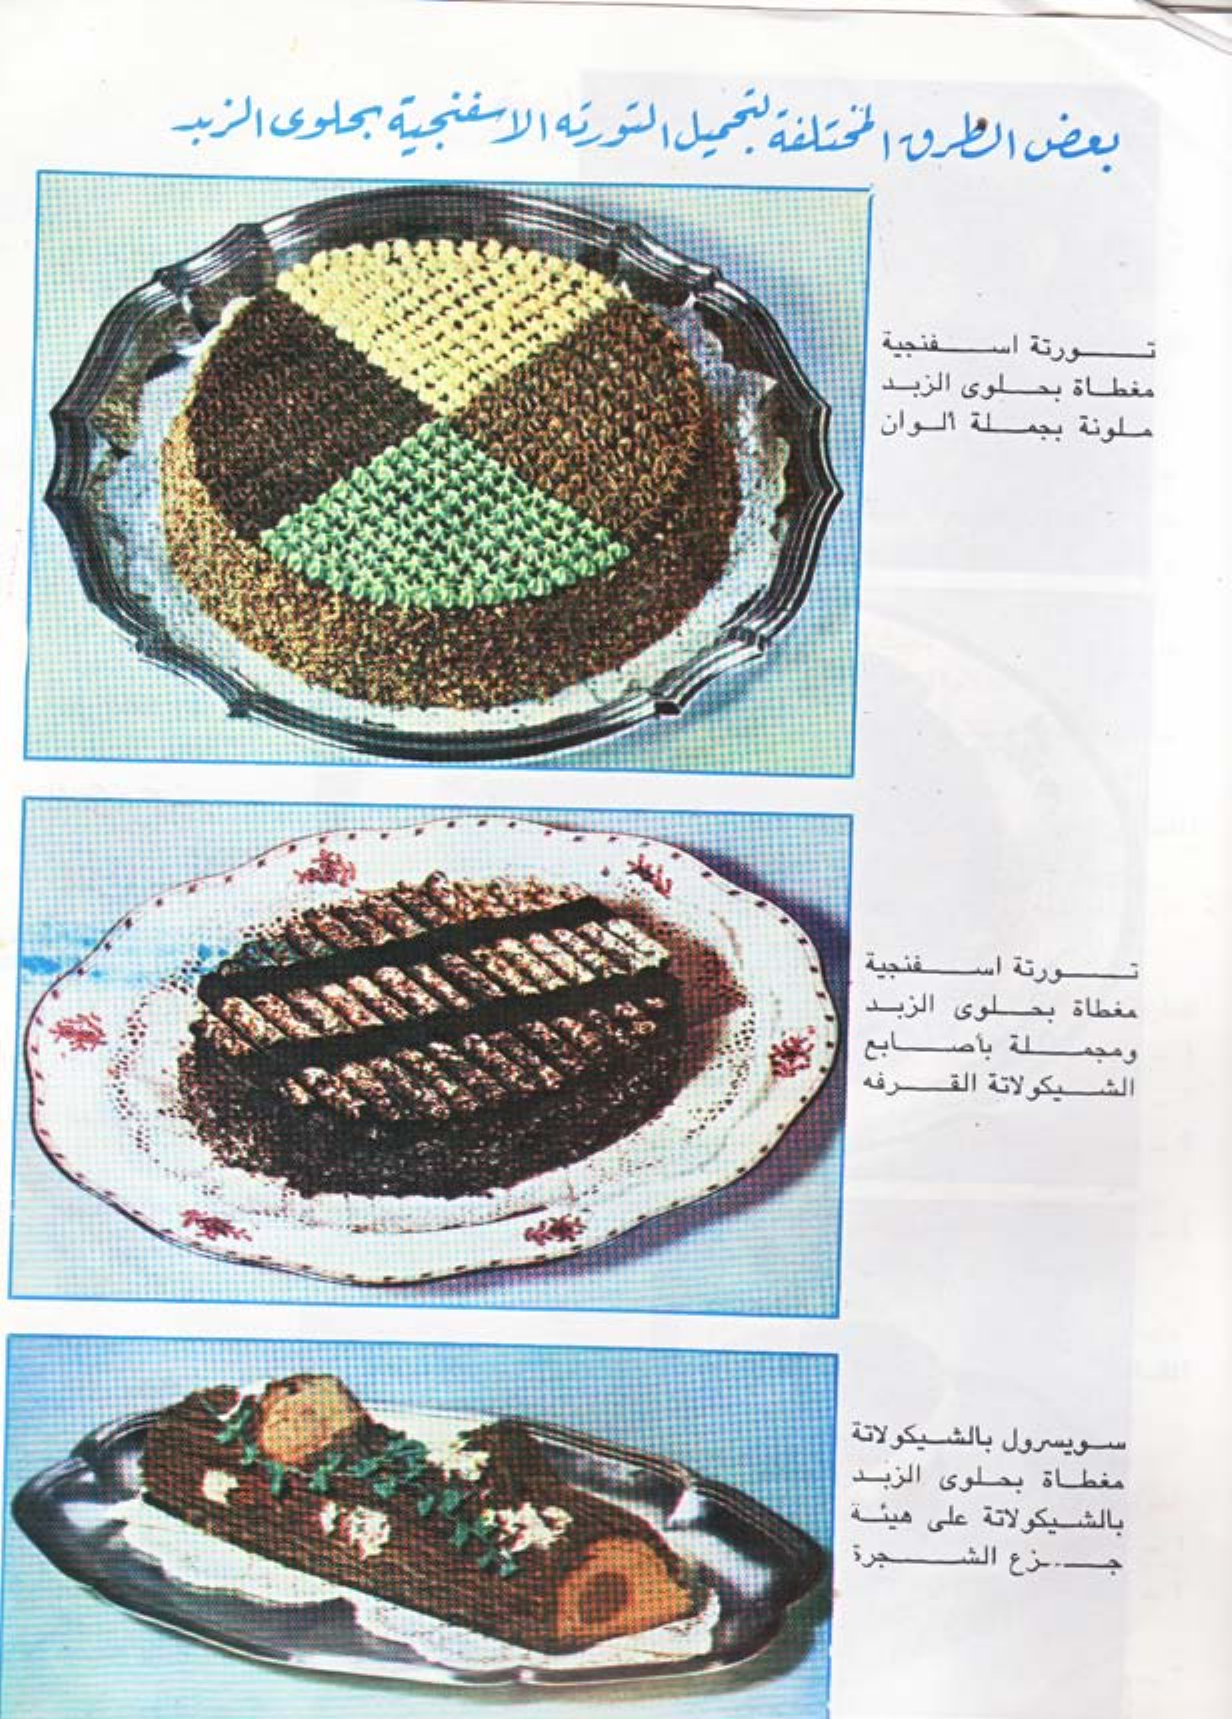 بعض الطرق المختلفة لتجميل التورته الاسفنجية بحلوى الزبد
تورتة اسفنجية
مغطاة بحلوى الزبد
ملونة بجملة ألوان
تورتة اسفنجية
مغطاة بحلوى الزبد
ومجملة بأصابع
الشيكولاتة القرفه
سويسرول بالشيكولاتة
مغطاة بحلوى الزبد
بالشيكولاتة على هيئة
جزع الشجرة